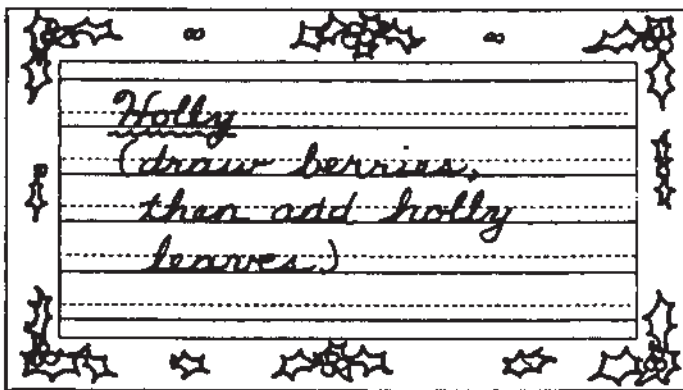 Holly
(draw berries,
then add holly
leaves)